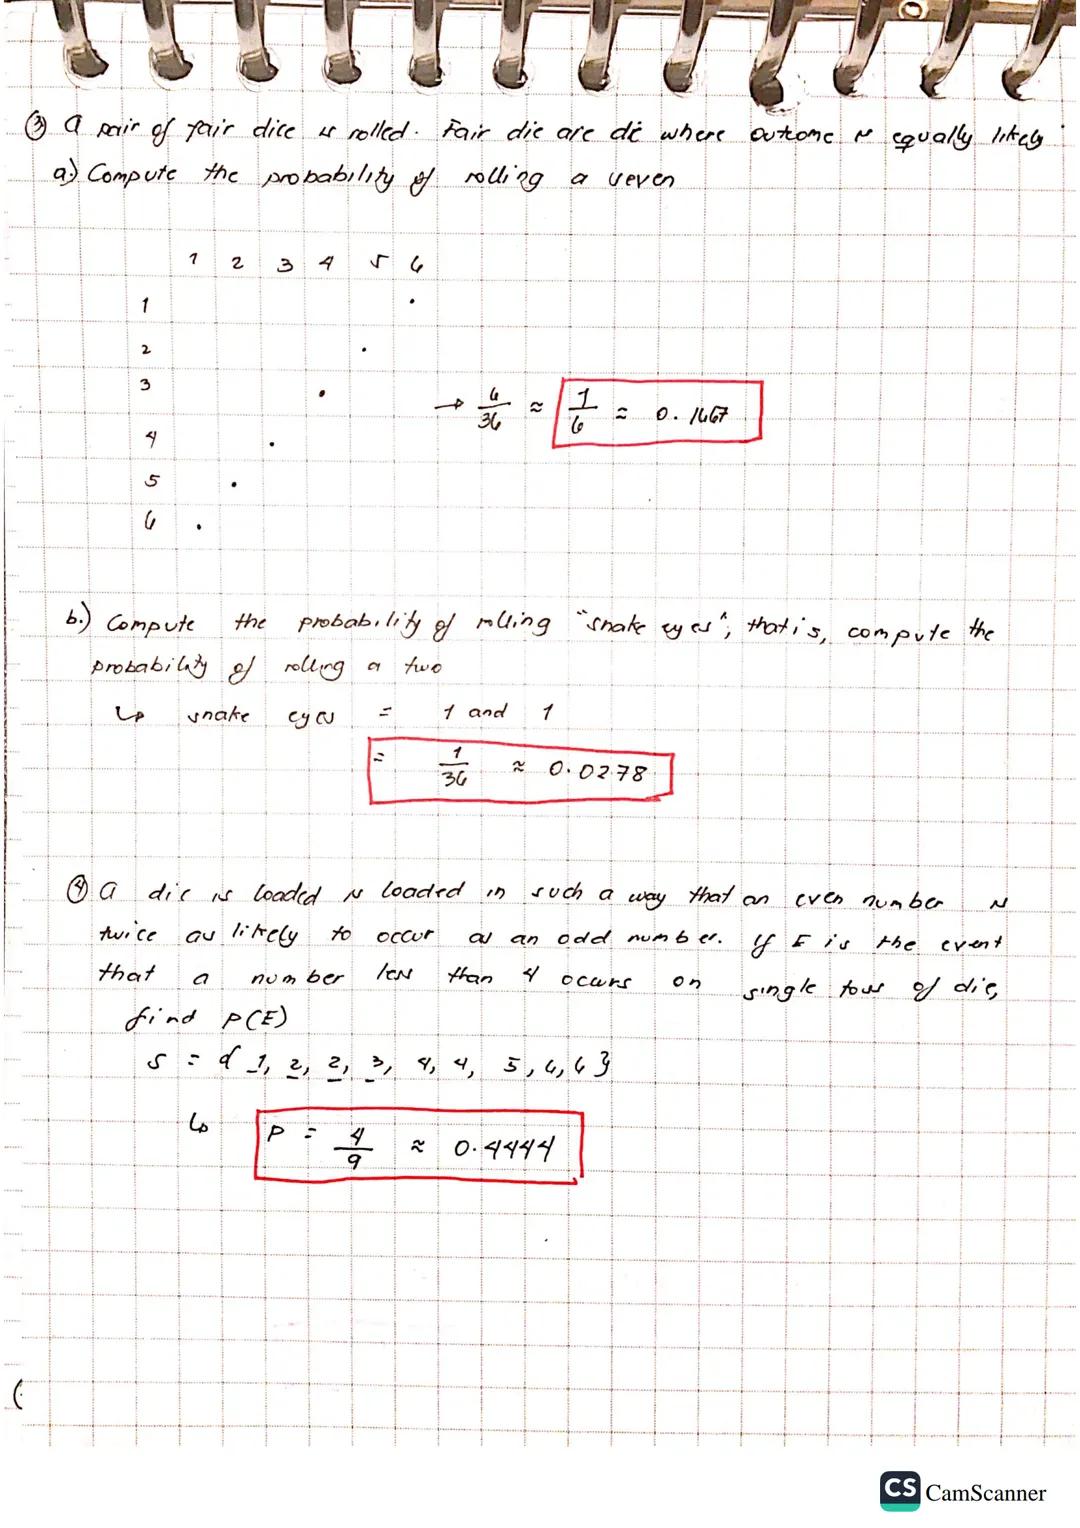 ③ A pair of fair dice is rolled. Fair die are di where outcome is equally likely.
a) Compute the probability of rolling a seven
1 2 3 4 5 6
1 .
2 .
3 .
→ 6/36 ≈ 1/6 ≈ 0.1667
4 .
5 .
6 .
b.) Compute the probability of rolling "snake eyes", that is, compute the
probability of rolling a two
↳ snake eyes = 1 and 1
= 1/36 ≈ 0.0278
④ A die is loaded is loaded in such a way that an even number is
twice as likely to occur as an odd number. If E is the event
that a number less than 4 occurs on single toss of die,
find P(E)
S = { 1, 2, 2, 3, 4, 4, 5, 6, 6 }
↳ P = 4/9 ≈ 0.4444
(
CS CamScanner